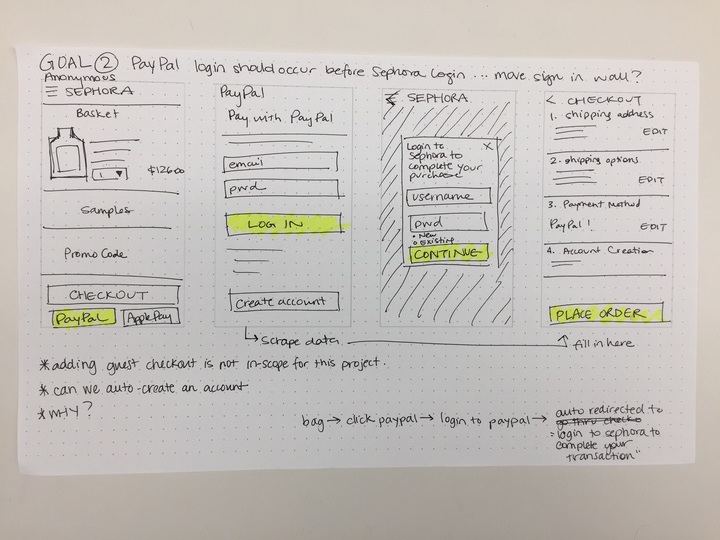 GOAL ② PayPal login should occur before Sephora login ... move sign in wall?
Anonymous
SEPHORA
Basket
1
$126.00
Samples
Promo Code
CHECKOUT
PayPal
Apple Pay
PayPal
Pay with PayPal
email
pwd
LOG IN
create account
SEPHORA
Login to
Sephora to
complete your
purchase
X
username
pwd
• New
o Existing
CONTINUE
< CHECKOUT
1. Shipping address
EDIT
2. Shipping options
EDIT
3. Payment Method
PayPal!
EDIT
4. Account Creation
PLACE ORDER
↳ scrape data
fill in here
* adding guest checkout is not in-scope for this project.
* can we auto-create an account
* WHY?
bag → click paypal → login to paypal → auto redirected to
go thru checko
"login to sephora to
complete your
transaction"